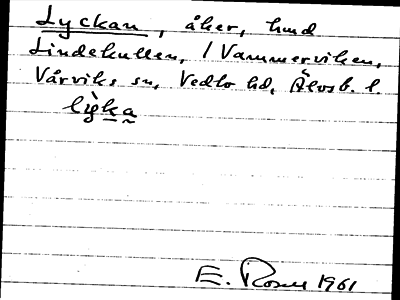 Lyckan, åker, hmd
Lindekullen, / Vammerviken,
Vårviks sn, Vedbo hd, Älvsb. l.
lỳka
E. Rosen 1961